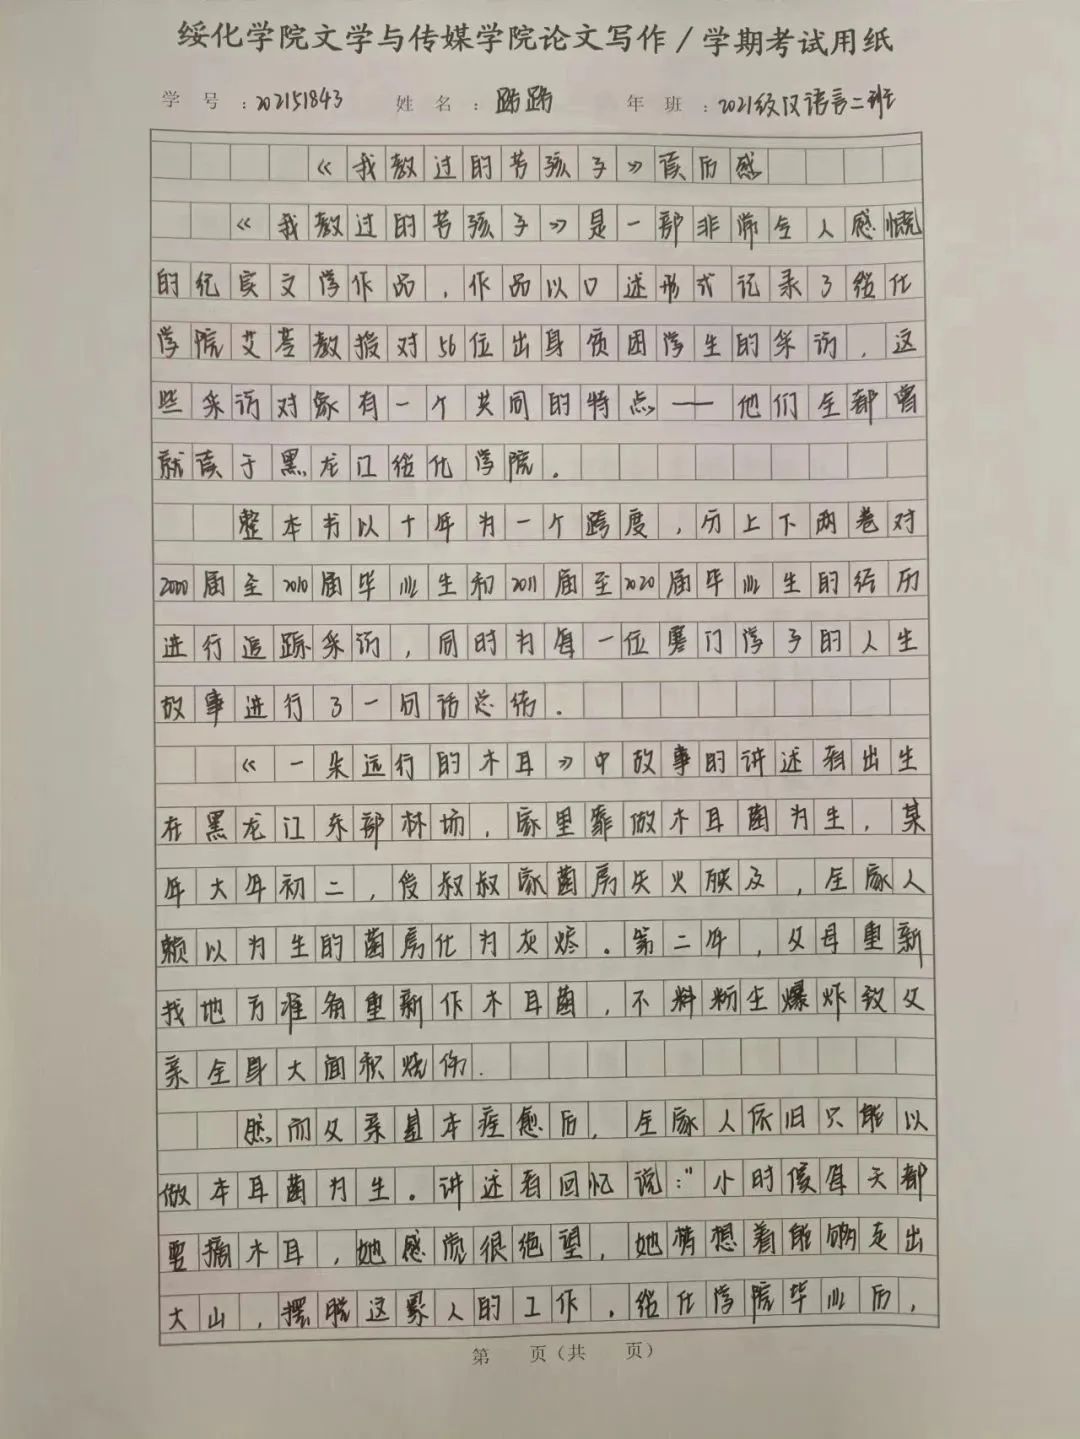 绥化学院文学与传媒学院论文写作/学期考试用纸
学 号 :202151843 姓 名 :路路 年 班 :2021级汉语言二班
《我教过的苦孩子》读后感
《我教过的苦孩子》是一部非常令人感慨
的纪实文学作品,作品以口述形式记录了绥化
学院艾苓教授对56位出身贫困学生的采访,这
些采访对象有一个共同的特点——他们全都曾
就读于黑龙江绥化学院。
整本书以十年为一个跨度,分上下两卷对
2000届至2010届毕业生和2011届至2020届毕业生的经历
进行追踪采访,同时为每一位寒门学子的人生
故事进行了一句话总结.
《一朵远行的木耳》中故事的讲述者出生
在黑龙江东部林场,家里靠做木耳菌为生,某
年大年初二,受叔叔家菌房失火殃及,全家人
赖以为生的菌房化为灰烬。第二年,父母重新
找地方准备重新作木耳菌,不料粉尘爆炸致父
亲全身大面积烧伤.
然而父亲基本痊愈后,全家人依旧只能以
做木耳菌为生。讲述者回忆说:"小时候每天都
要摘木耳,她感觉很绝望,她梦想着能够走出
大山,摆脱这累人的工作,绥化学院毕业后,
第 页(共 页)